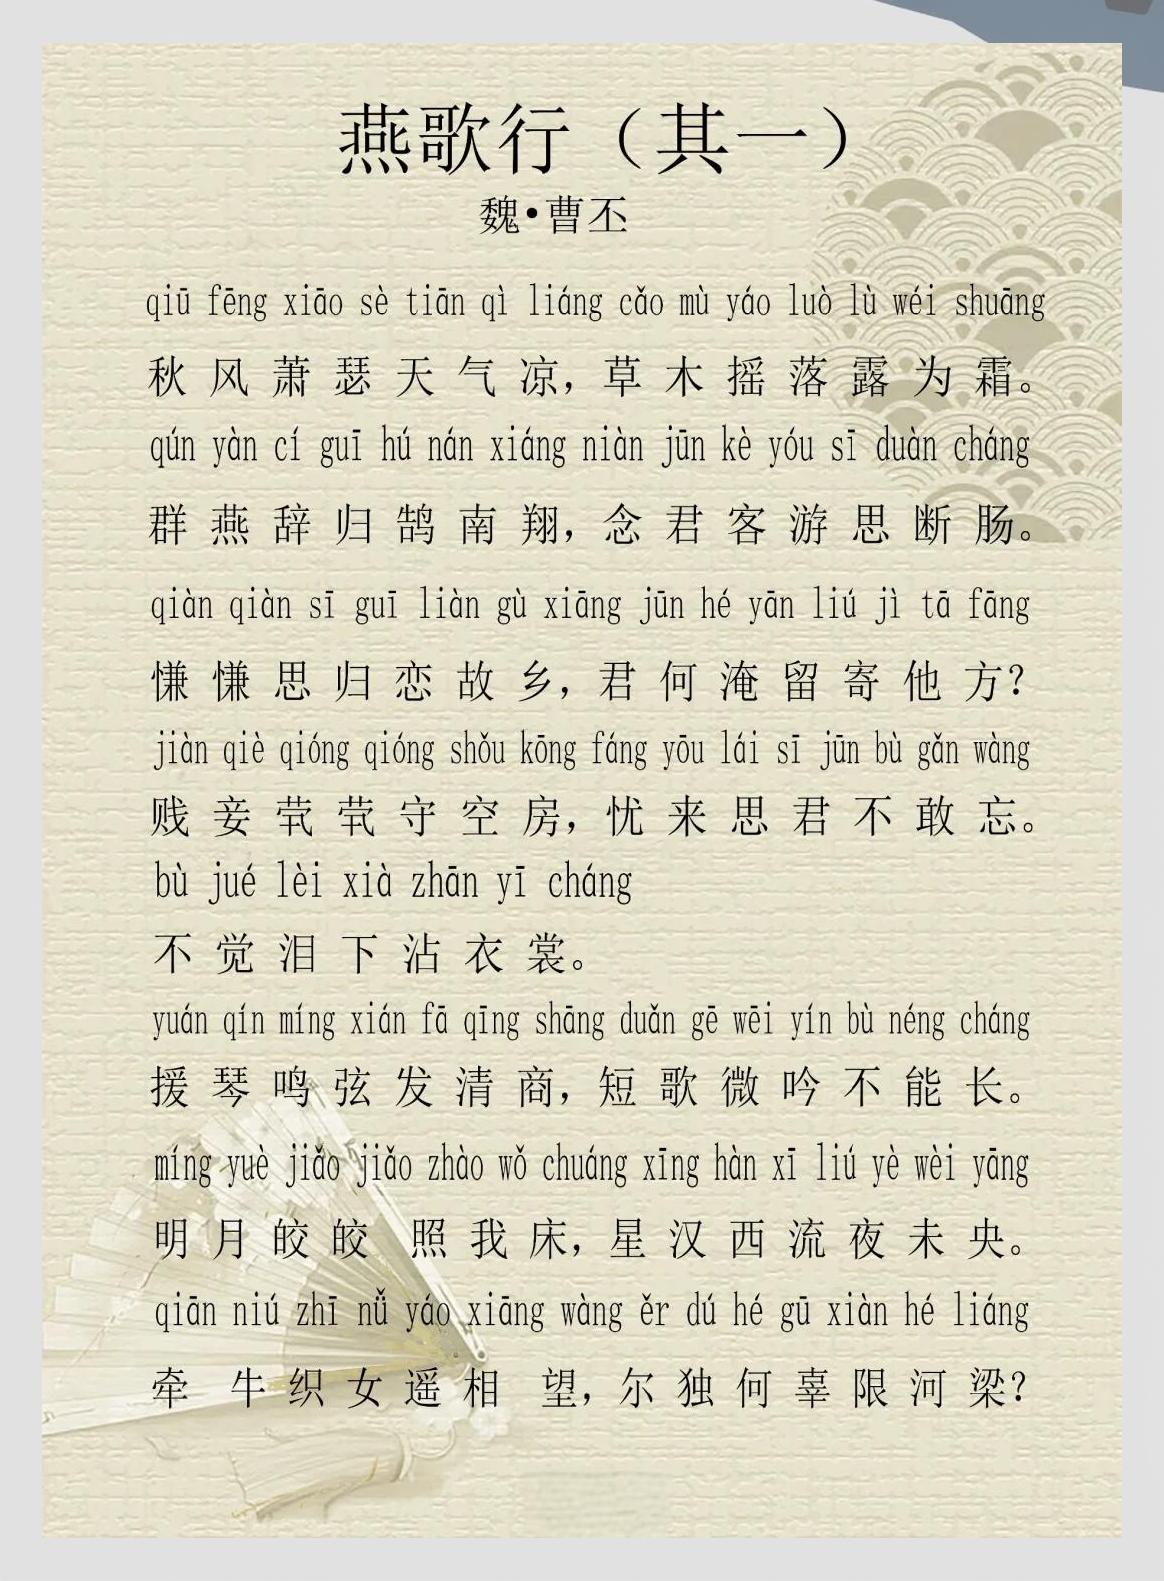 燕歌行（其一）
魏•曹丕
qiū fēng xiāo sè tiān qì liáng cǎo mù yáo luò lù wéi shuāng
秋风萧瑟天气凉，草木摇落露为霜。
qún yàn cí guī hú nán xiáng niàn jūn kè yóu sī duàn cháng
群燕辞归鹄南翔，念君客游思断肠。
qiàn qiàn sī guī liàn gù xiāng jūn hé yān liú jì tā fāng
慊慊思归恋故乡，君何淹留寄他方？
jiàn qiè qióng qióng shǒu kōng fáng yōu lái sī jūn bù gǎn wàng
贱妾茕茕守空房，忧来思君不敢忘。
bù jué lèi xià zhān yī cháng
不觉泪下沾衣裳。
yuán qín míng xián fā qīng shāng duǎn gē wēi yín bù néng cháng
援琴鸣弦发清商，短歌微吟不能长。
míng yuè jiǎo jiǎo zhào wǒ chuáng xīng hàn xī liú yè wèi yāng
明月皎皎照我床，星汉西流夜未央。
qiān niú zhī nǚ yáo xiāng wàng ěr dú hé gū xiàn hé liáng
牵牛织女遥相望，尔独何辜限河梁？